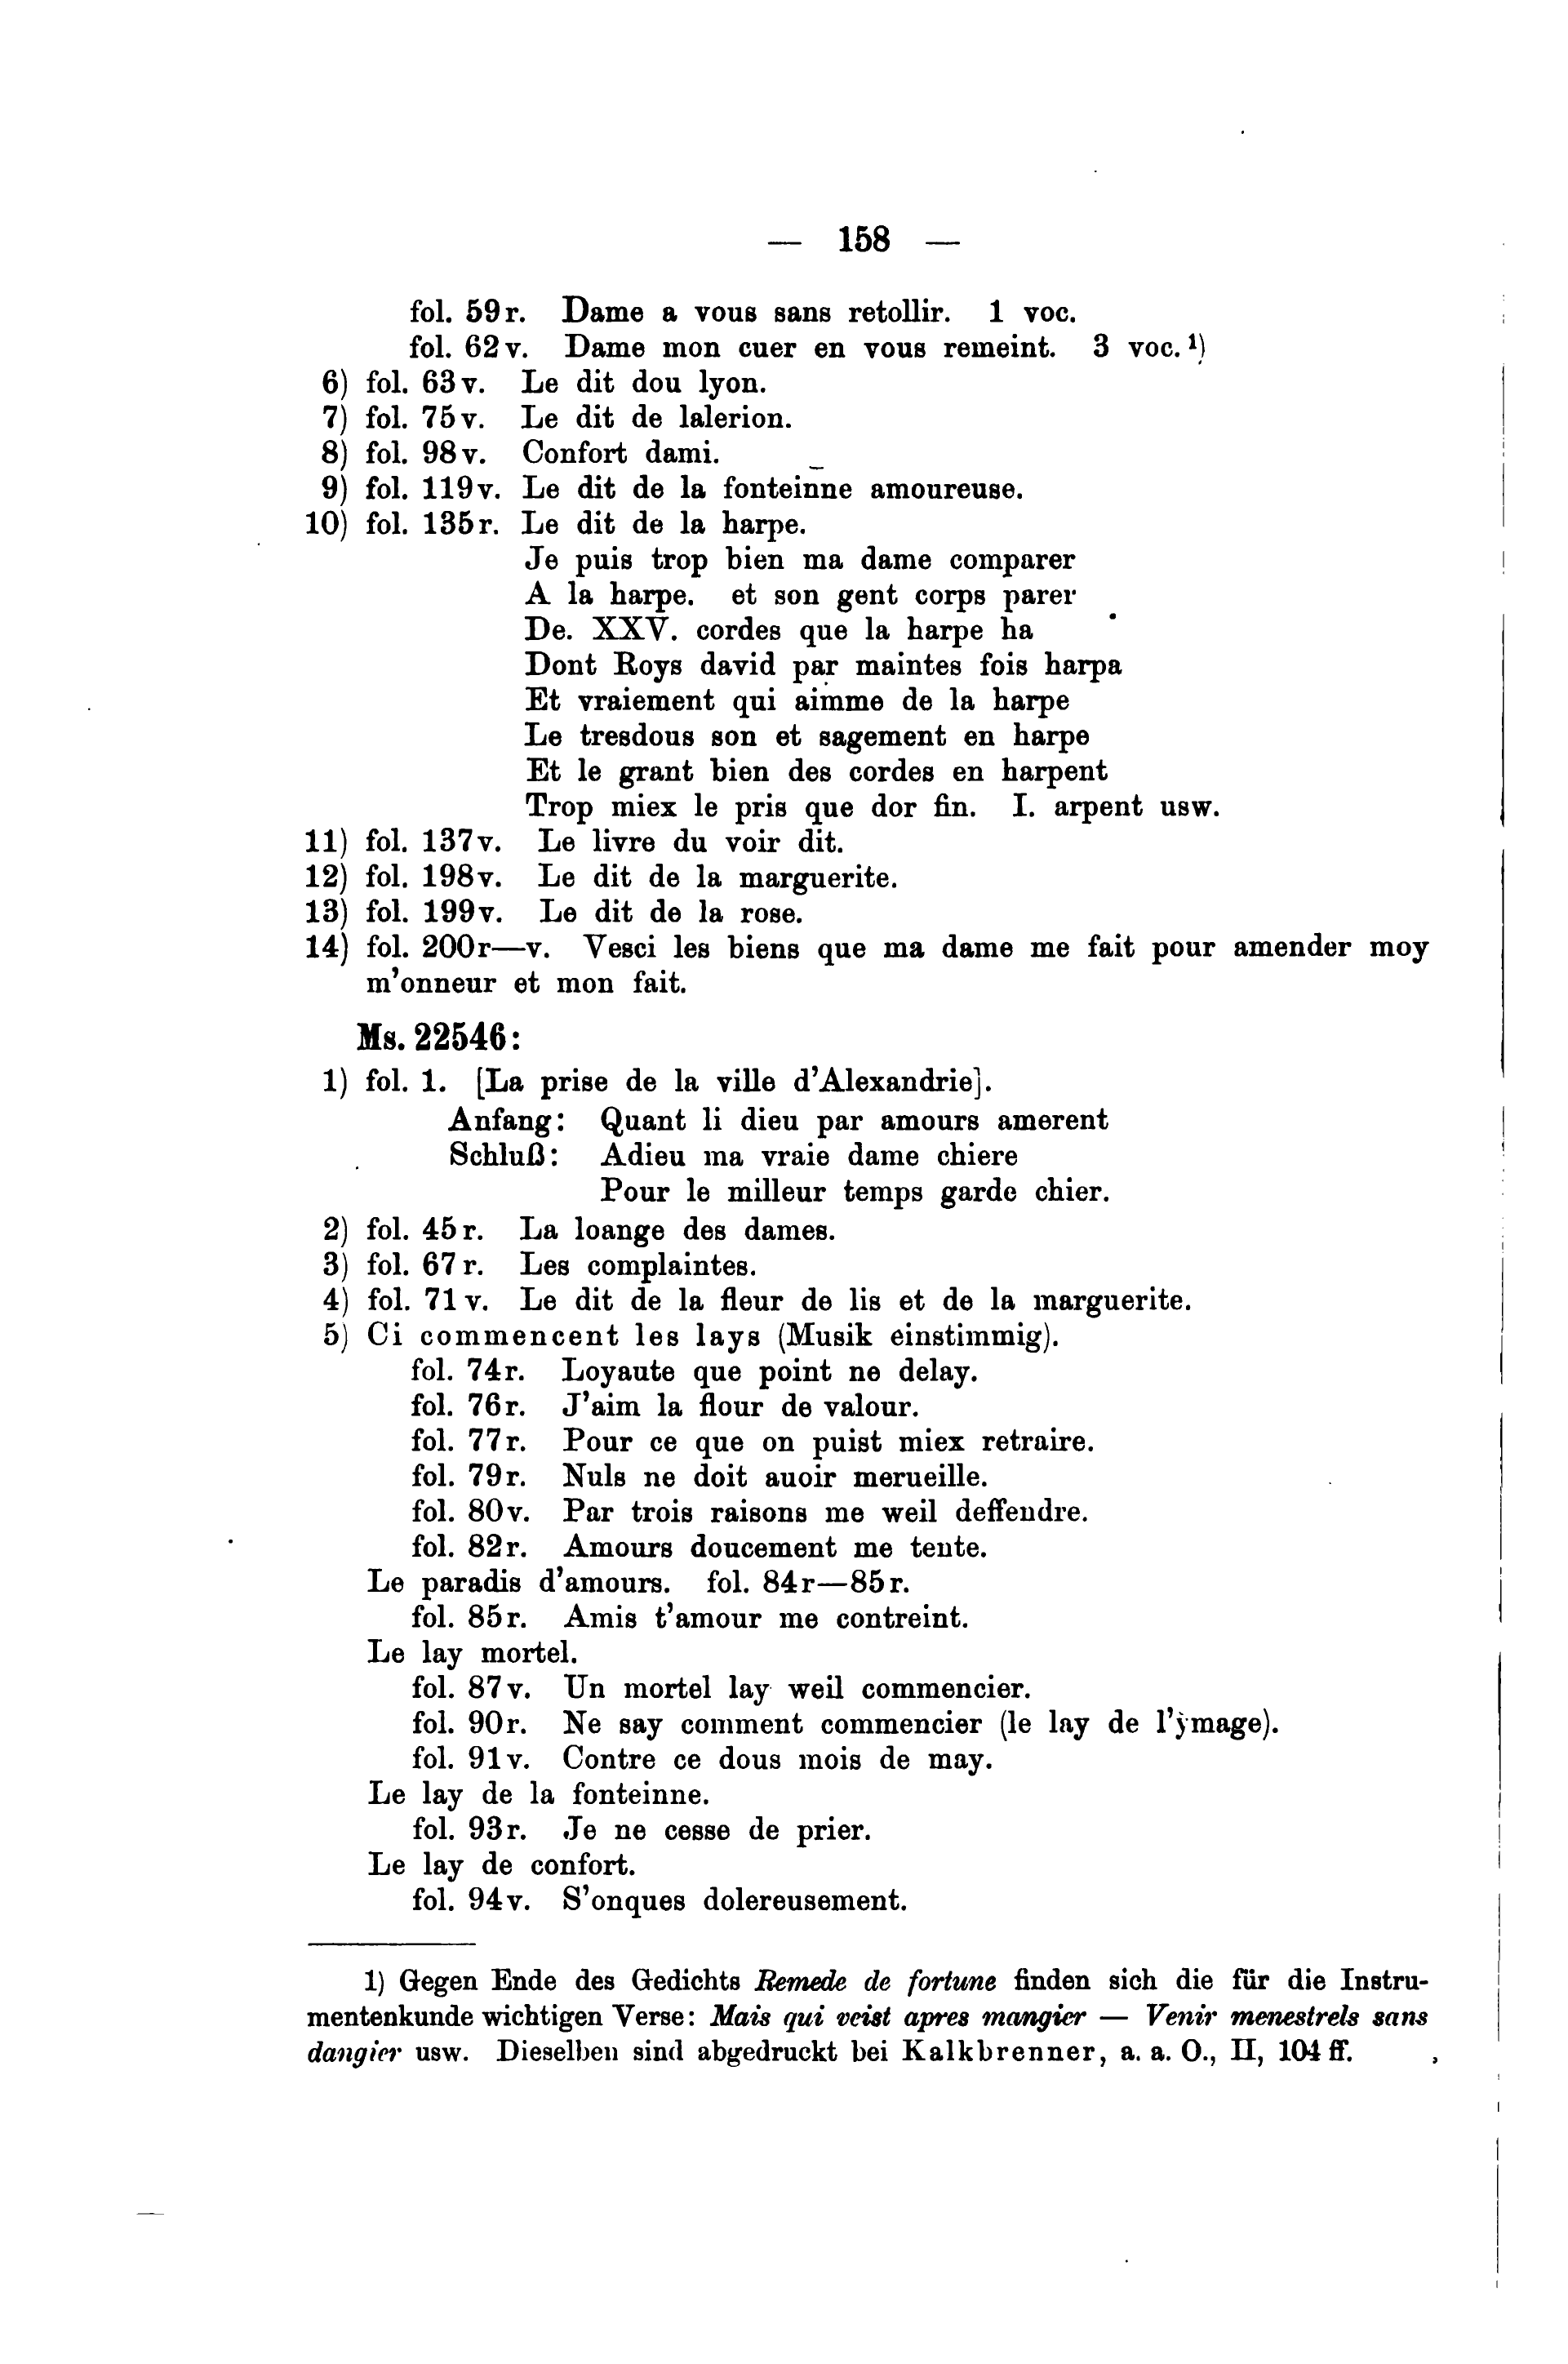 — 158 —
fol. 59r. Dame a vous sans retollir. 1 voc.
fol. 62v. Dame mon cuer en vous remeint. 3 voc.¹)
6) fol. 63v. Le dit dou lyon.
7) fol. 75v. Le dit de lalerion.
8) fol. 98v. Confort dami.
9) fol. 119v. Le dit de la fontein̄ne amoureuse.
10) fol. 135r. Le dit de la harpe.
Je puis trop bien ma dame comparer
A la harpe. et son gent corps parer
De. XXV. cordes que la harpe ha
Dont Roys david par maintes fois harpa
Et vraiement qui aimme de la harpe
Le tresdous son et sagement en harpe
Et le grant bien des cordes en harpent
Trop miex le pris que dor fin. I. arpent usw.
11) fol. 137v. Le livre du voir dit.
12) fol. 198v. Le dit de la marguerite.
13) fol. 199v. Le dit de la rose.
14) fol. 200r—v. Vesci les biens que ma dame me fait pour amender moy
m'onneur et mon fait.
Ms. 22546:
1) fol. 1. [La prise de la ville d'Alexandrie].
Anfang: Quant li dieu par amours amerent
Schluß: Adieu ma vraie dame chiere
Pour le milleur temps garde chier.
2) fol. 45r. La loange des dames.
3) fol. 67r. Les complaintes.
4) fol. 71v. Le dit de la fleur de lis et de la marguerite.
5) Ci commencent les lays (Musik einstimmig).
fol. 74r. Loyaute que point ne delay.
fol. 76r. J'aim la flour de valour.
fol. 77r. Pour ce que on puist miex retraire.
fol. 79r. Nuls ne doit auoir merueille.
fol. 80v. Par trois raisons me weil deffendre.
fol. 82r. Amours doucement me tente.
Le paradis d'amours. fol. 84r—85r.
fol. 85r. Amis t'amour me contreint.
Le lay mortel.
fol. 87v. Un mortel lay weil commencier.
fol. 90r. Ne say comment commencier (le lay de l'ẏmage).
fol. 91v. Contre ce dous mois de may.
Le lay de la fonteinne.
fol. 93r. Je ne cesse de prier.
Le lay de confort.
fol. 94v. S'onques dolereusement.
1) Gegen Ende des Gedichts Remede de fortune finden sich die für die Instru-
mentenkunde wichtigen Verse: Mais qui veist apres mangier — Venir menestrels sans
dangier usw. Dieselben sind abgedruckt bei Kalkbrenner, a. a. O., II, 104 ff.